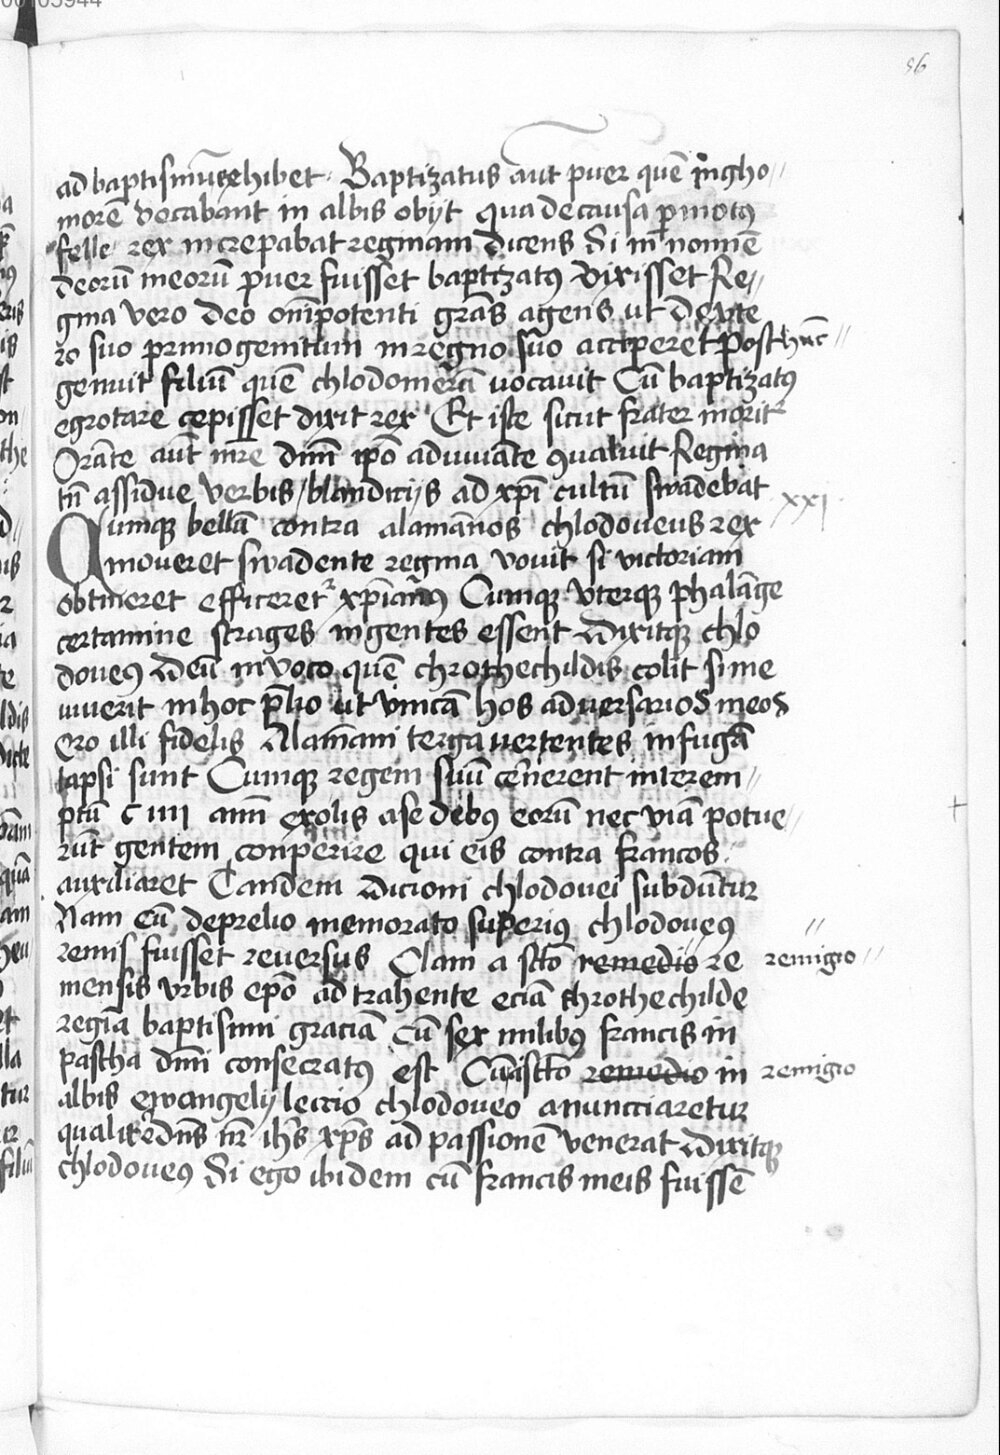 00105944
56
ad baptismū exhibet Baptizatus aūt puer quē ingho//
morē vocabant in albis obijt qua de causa permotꝰ
felle rex increpabat reginam dicens Si in nomīe
deorū meorū puer fuisset baptizatꝰ vixisset Re//
gina vero deo omīpotenti grās agens ut dexte
ro suo primogenitum in regno suo acciperet Post hūc //
genuit filiū quē chlodomerē vocavit Cū baptizatꝰ
egrotare cepisset dixit rex Et iste sicut frater moritr
Orāte aūt mr̄e dnm̄ ipō adiuvāte 9valuit Regina
tn̄ assidue verbis blandicijs ad xpī cultū swadebat
Qumque bellā contra alamānos chlodoveus rex xxi
moveret swadente regina vovit si victoriam
obtineret efficeretr xpīanꝰ Cumque uterque phalāge
certamine strages ingentes essent dixitque chlo
doveꝰ Deū invoco quē chrothechildis colit si me
iuverit in hoc p̄lio ut vincā hos adversarios meos
Ero illi fidelis Alamani terga vertentes in fugā
lapsi sunt Cumque regem suū cernerent interem//
ptū c iiii anni exolis a sedebꝰ eorū nec viā potue//
rūt gentem conperire qui eis contra francos
auxiliaret Tandem dicioni chlodovei subdūtur
Nam cū de prelio memorato superiꝰ chlodoveꝰ
remis fuisset reversus Clam a scto remedio re remigio //
mensis urbis epō adtrahente eciā chrothechilde
regīa baptismi graciā cū sex milibꝰ francis in
pascha dnī consecratꝰ est Cū a scto remedio in remigio
albis ewangelij leccio chlodoveo anuncciaretur
qualitr dns̄ nr̄ ihs̄ xps̄ ad passionē venerat dixitque
chlodoveꝰ Si ego ibidem cū francis meis fuissē